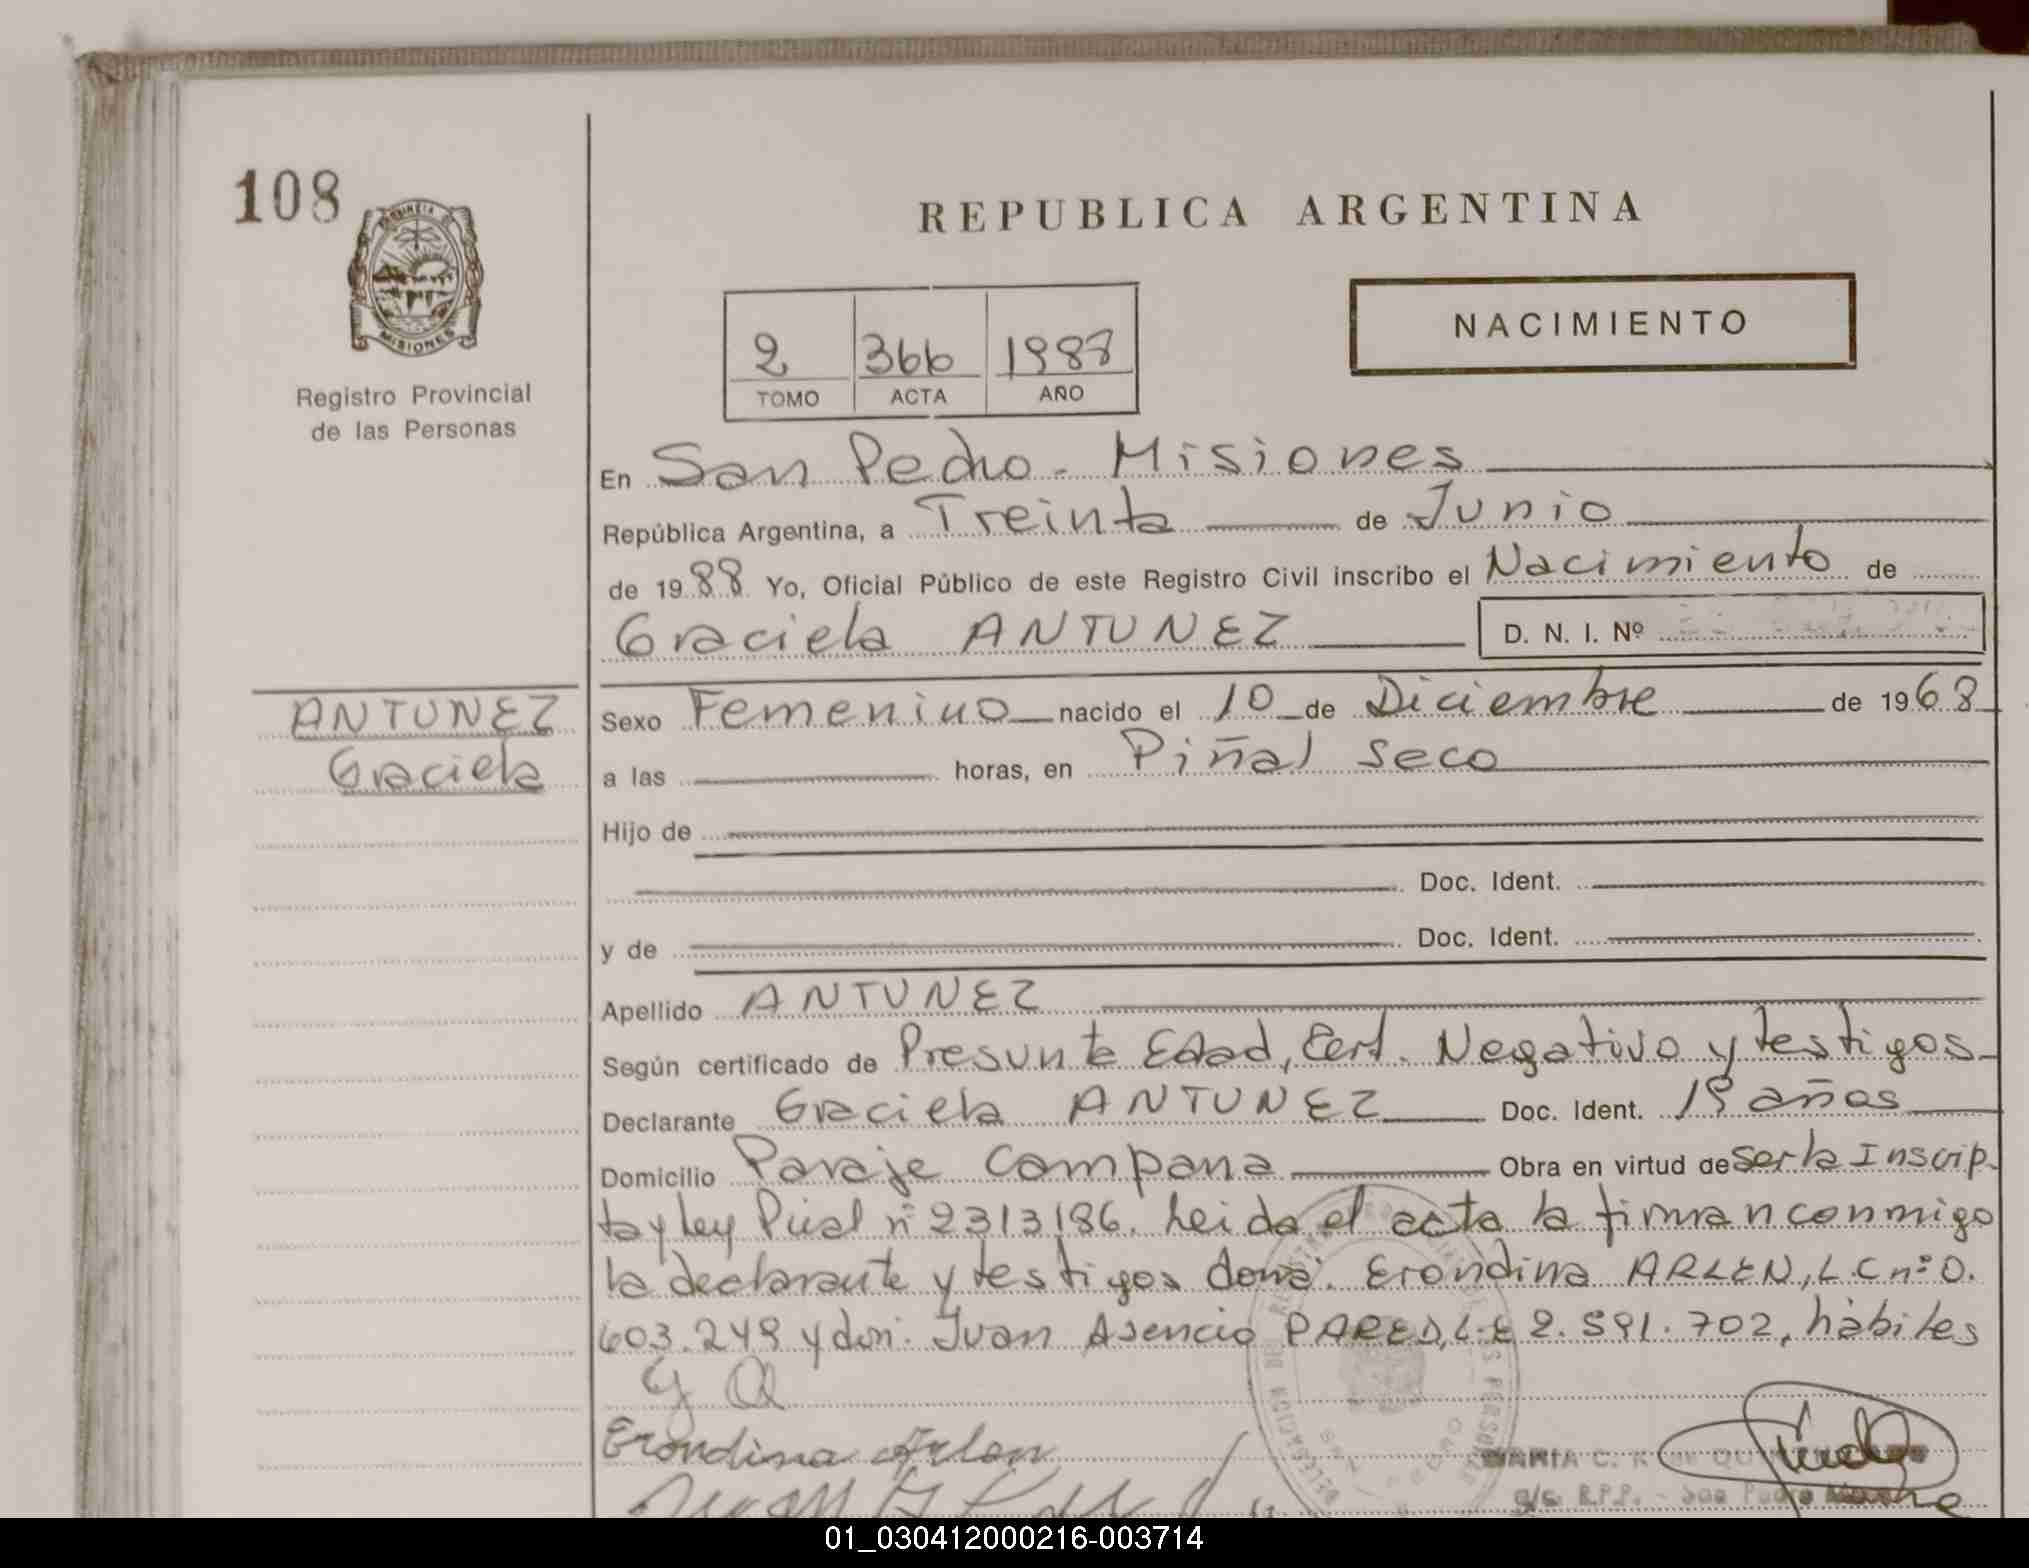 108
PROVINCIA DE
MISIONES
Registro Provincial
de las Personas
REPUBLICA ARGENTINA
2 366 1988
TOMO ACTA AÑO
NACIMIENTO
En San Pedro - Misiones
República Argentina, a Treinta de Junio
de 1988 Yo, Oficial Público de este Registro Civil inscribo el Nacimiento de
Graciela ANTUNEZ D. N. I. Nº
ANTUNEZ
Graciela
Sexo Femenino nacido el 10 de Diciembre de 1968
a las horas, en Piñal Seco
Hijo de
Doc. Ident.
y de Doc. Ident.
Apellido ANTUNEZ
Según certificado de Presunta Edad, Cert. Negativo y testigos
Declarante Graciela ANTUNEZ Doc. Ident. 19 años
Domicilio Paraje Campana Obra en virtud de Ser la Inscrip-
ta y ley Pcial nº 2313/86. Leida el acta la firman conmigo
la declarante y testigos doña: Erondina ARLEN, LC nº 0.
603.249 y don: Juan Asencio PARED, L.E 2.591.702, hábiles
Erondina Arlen
MARIA C.
a/c. R.P.P. - San Pedro
01_030412000216-003714